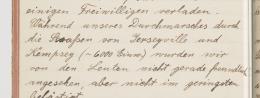 einigen Freiwilligen verladen.
Während unseres Durchmarsches durch
die Straßen von Horseyville und
Hempseg (≈ 6000 Einw.) wurden wir
von den Leuten nicht gerade freundlich
angesehen, aber nicht im geringsten
belästigt